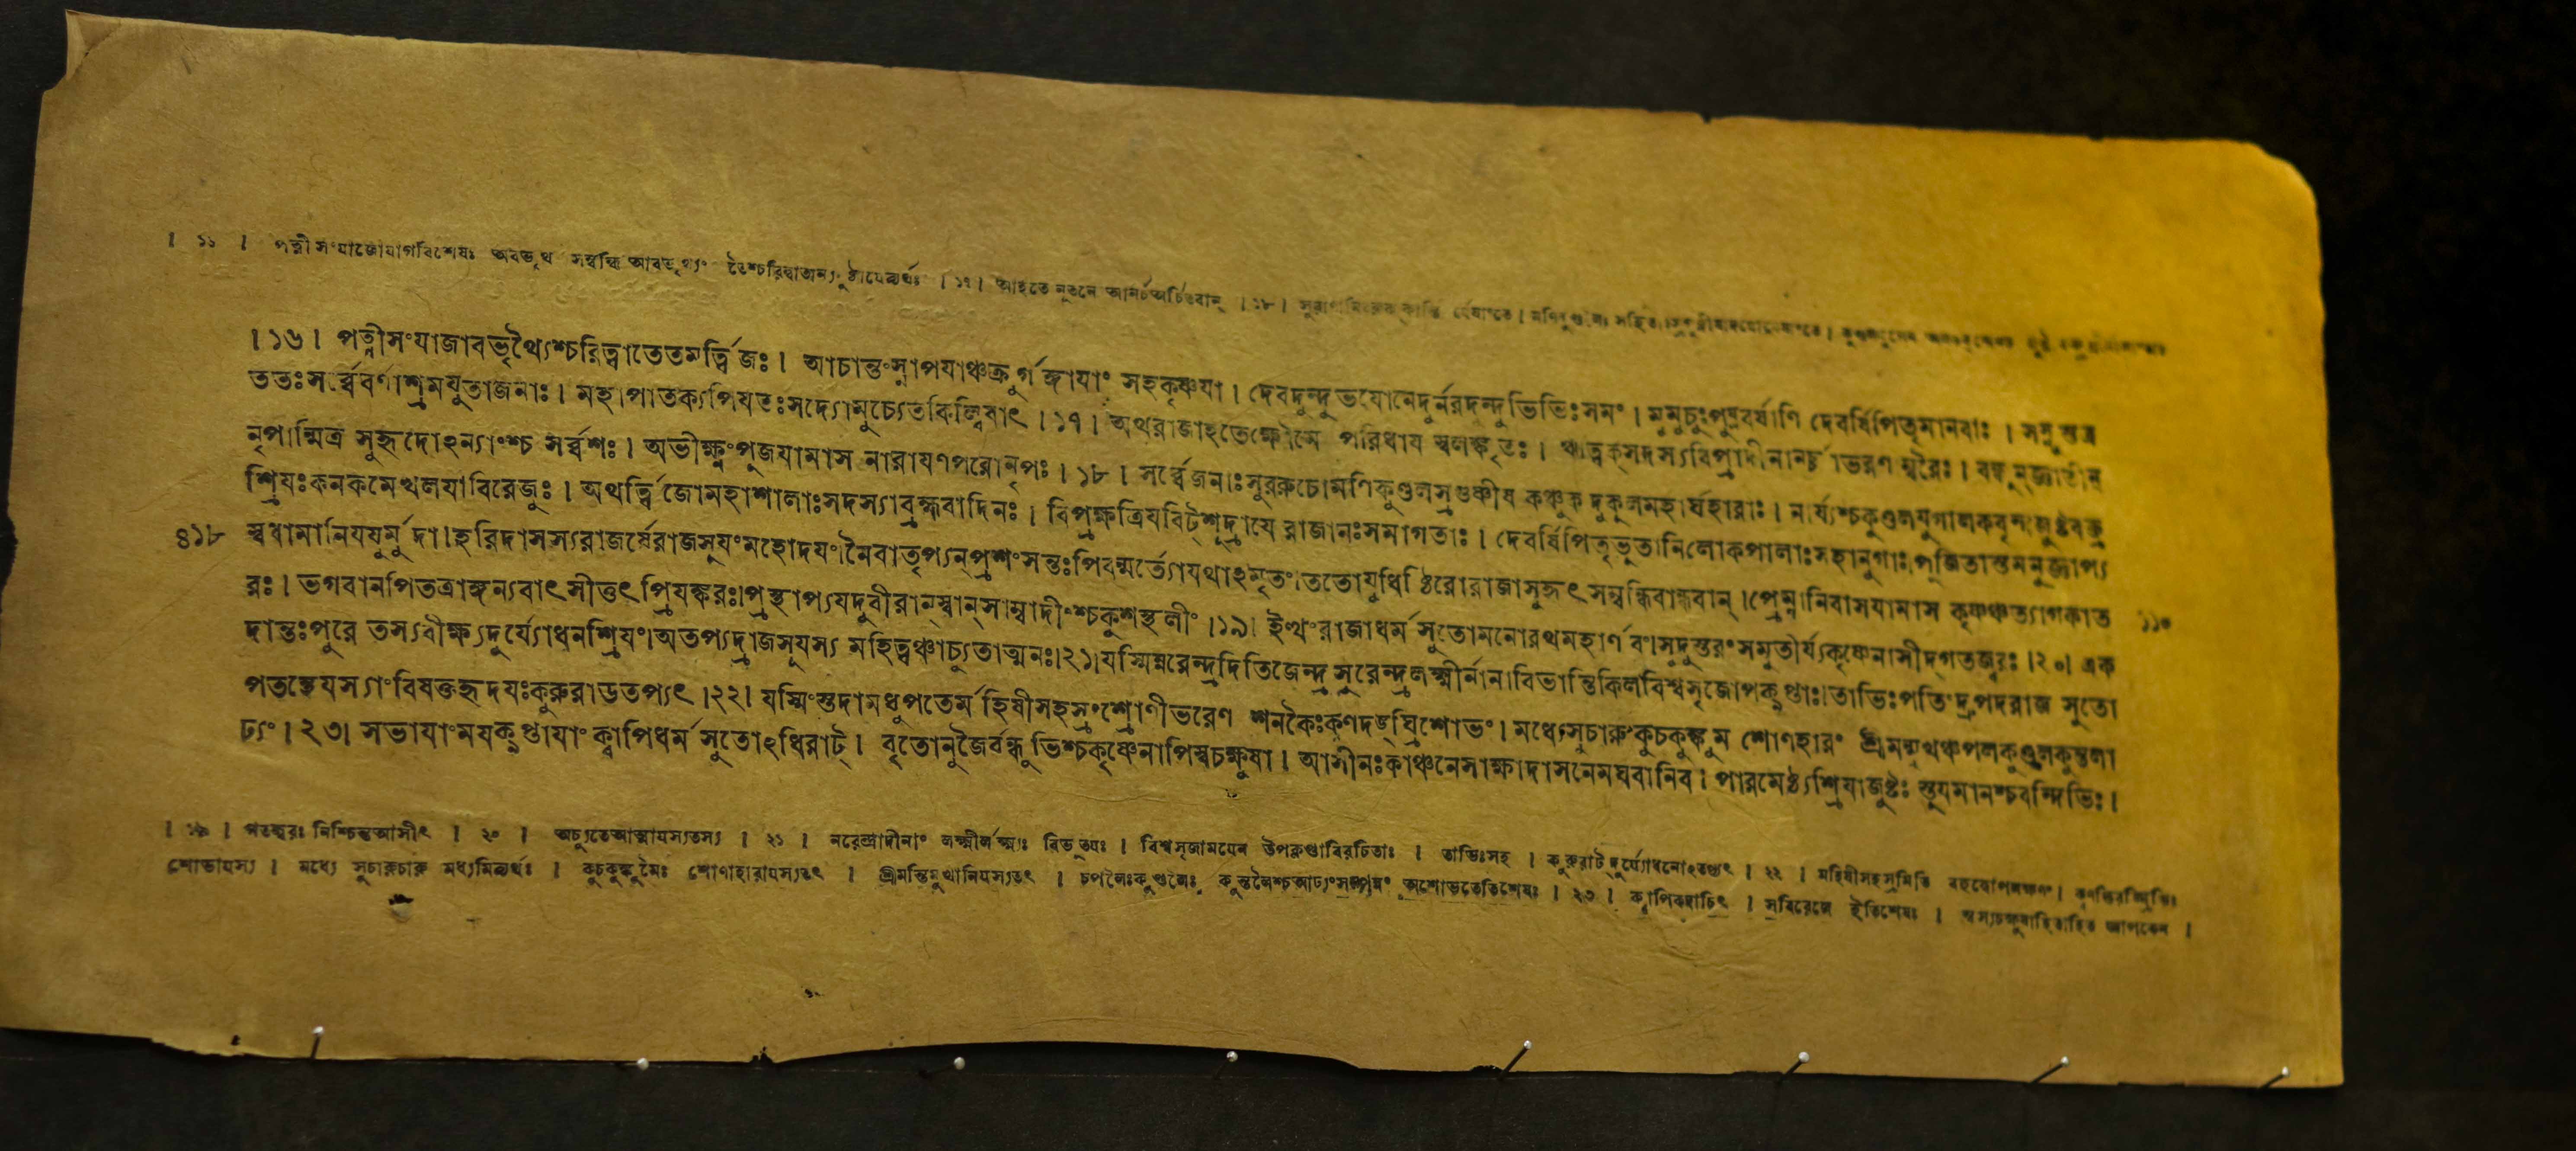 । ১১ । পত্নীসংযাজোযাগবিশেষঃ অবভৃথ সম্বন্ধি আবভৃথ্যং তৈশ্চরিত্বাঅনুষ্ঠাপ্যেত্যর্থঃ । ১৭ । আহতে নূতনে আনর্চঅর্চিতবান্ । ১৮ ।
। ১৬ । পত্নীসংযাজাবভৃথ্যৈশ্চরিত্বাতেতমর্ত্ত্বিজঃ । আচান্তংস্নাপযাঞ্চক্রুর্গঙ্গাযাং সহকৃষ্ণযা । দেবদুন্দুভযোনেদুর্নরদুন্দুভিভিঃসমং । মুমুচুঃপুষ্পবর্ষাণি দেবর্ষিপিতৃমানবাঃ । সস্নুস্তত্র
ততঃসর্ব্বেবর্ণাশ্রমযুতাজনাঃ । মহাপাতক্যপিযতঃসদ্যোমুচ্যেতকিল্বিষাৎ । ১৭ । অথরাজাহতেক্ষৌমে পরিধায স্বলঙ্কৃতঃ । ঋত্বিক্সদস্যবিপ্রাদীনানর্চ্চাভরণাম্বরৈঃ । বন্ধূন্জ্ঞাতীন্
নৃপান্মিত্র সুহৃদোঽন্যাংশ্চ সর্ব্বশঃ । অভীক্ষ্ণংপূজযামাস নারাযণপরোনৃপঃ । ১৮ । সর্ব্বেজনাঃসুররুচোমণিকুণ্ডলস্রগুষ্ণীষ কঞ্চুক দুকূলমহার্ঘহারাঃ । নার্য্যশ্চকুণ্ডলযুগালকবৃন্দজুষ্টবক্ত্র
শ্রিযঃকনকমেখলযাবিরেজুঃ । অথর্ত্ত্বিজোমহাশালাঃসদস্যাব্রহ্মবাদিনঃ । বিপ্রক্ষত্রিযবিট্শূদ্রাযে রাজানঃসমাগতাঃ । দেবর্ষিপিতৃভূতানিলোকপালাঃসহানুগাঃ।পূজিতাস্তমনুজ্ঞাপ্য
৪১৮ স্বধামানিযযুর্মুদা।হরিদাসস্যরাজর্ষেরাজসূযংমহোদযং।নৈবাতৃপ্যন্প্রশংসন্তঃপিবন্মর্ত্ত্যোযথাঽমৃতং।ততোযুধিষ্ঠিরোরাজাসুহৃৎ সম্বন্ধিবান্ধবান্ ।প্রেম্ণানিবাসযামাস কৃষ্ণঞ্চত্যাগকাত ১১০
রঃ । ভগবানপিতত্রাঙ্গন্যবাৎসীত্তৎপ্রিযঙ্করঃ।প্রস্থাপ্যযদুবীরান্স্বান্সাম্বাদীংশ্চকুশস্থলীং ।১৯। ইত্থংরাজাধর্মসুতোমনোরথমহার্ণবং।সুদুস্তরংসমুত্তীর্য্যকৃষ্ণেনাসীদ্গতজ্বরঃ ।২০। এক
দান্তঃপুরে তস্যবীক্ষ্যদুর্য্যোধনশ্রিযং।অতপ্যদ্রাজসূযস্য মহিত্বঞ্চাচ্যুতাত্মনঃ।২১।যস্মিন্নরেন্দ্রদিতিজেন্দ্রসুরেন্দ্রলক্ষ্মীর্নানাবিভান্তিকিলবিশ্বসৃজোপকৢপ্তাঃ।তাভিঃপতিংদ্রুপদরাজ সুতো
পতস্থেযস্যাংবিষক্তহৃদযঃকুরুরাডতপ্যৎ ।২২। যস্মিংস্তদামধুপতের্মহিষীসহস্রংশ্রোণীভরেণ শনকৈঃক্বণদঙ্ঘ্রিশোভং । মধ্যেসুচারুকুচকুঙ্কুম শোণহারং শ্রীমন্মুখঞ্চপলকুণ্ডলকুন্তলা
ঢ্যং । ২৩। সভাযাংমযকৢপ্তাযাং ক্বাপিধর্মসুতোঽধিরাট্ । বৃতোনুজৈর্বন্ধুভিশ্চকৃষ্ণেনাপিস্বচক্ষুষা । আসীনঃকাঞ্চনেসাক্ষাদাসনেমঘবানিব । পারমেষ্ঠ্যশ্রিযাজুষ্টঃ স্তূযমানশ্চবন্দিভিঃ ।
। ১৯ । গতজ্বরঃ নিশ্চিন্তআসীৎ । ২০ । অচ্যুতেআত্মাযস্যতস্য । ২১ । নরেন্দ্রাদীনাং লক্ষ্মীর্লক্ষ্ম্যঃ বিভূতযঃ । বিশ্বসৃজাময়েন উপকৢপ্তাবিরচিতাঃ । তাভিঃসহ । কুরুরাট্দুর্য্যোধনোঽতপ্যৎ । ২২ । মহিষীসহস্রমিতি
শোভাযস্য । মধ্যে সুচারুচারু মধ্যমিত্যর্থঃ । কুচকুঙ্কুমৈঃ শোণাহারাযস্যতৎ । শ্রীমন্তিমুখানিযস্যতৎ । চপলৈঃকুণ্ডলৈঃ কুন্তলৈশ্চআঢ্যংসম্পন্নং অশোভতেতিশেষঃ । ২৩ । ক্বাপিকদাচিৎ । সবিরেজে ইতিশেষঃ ।